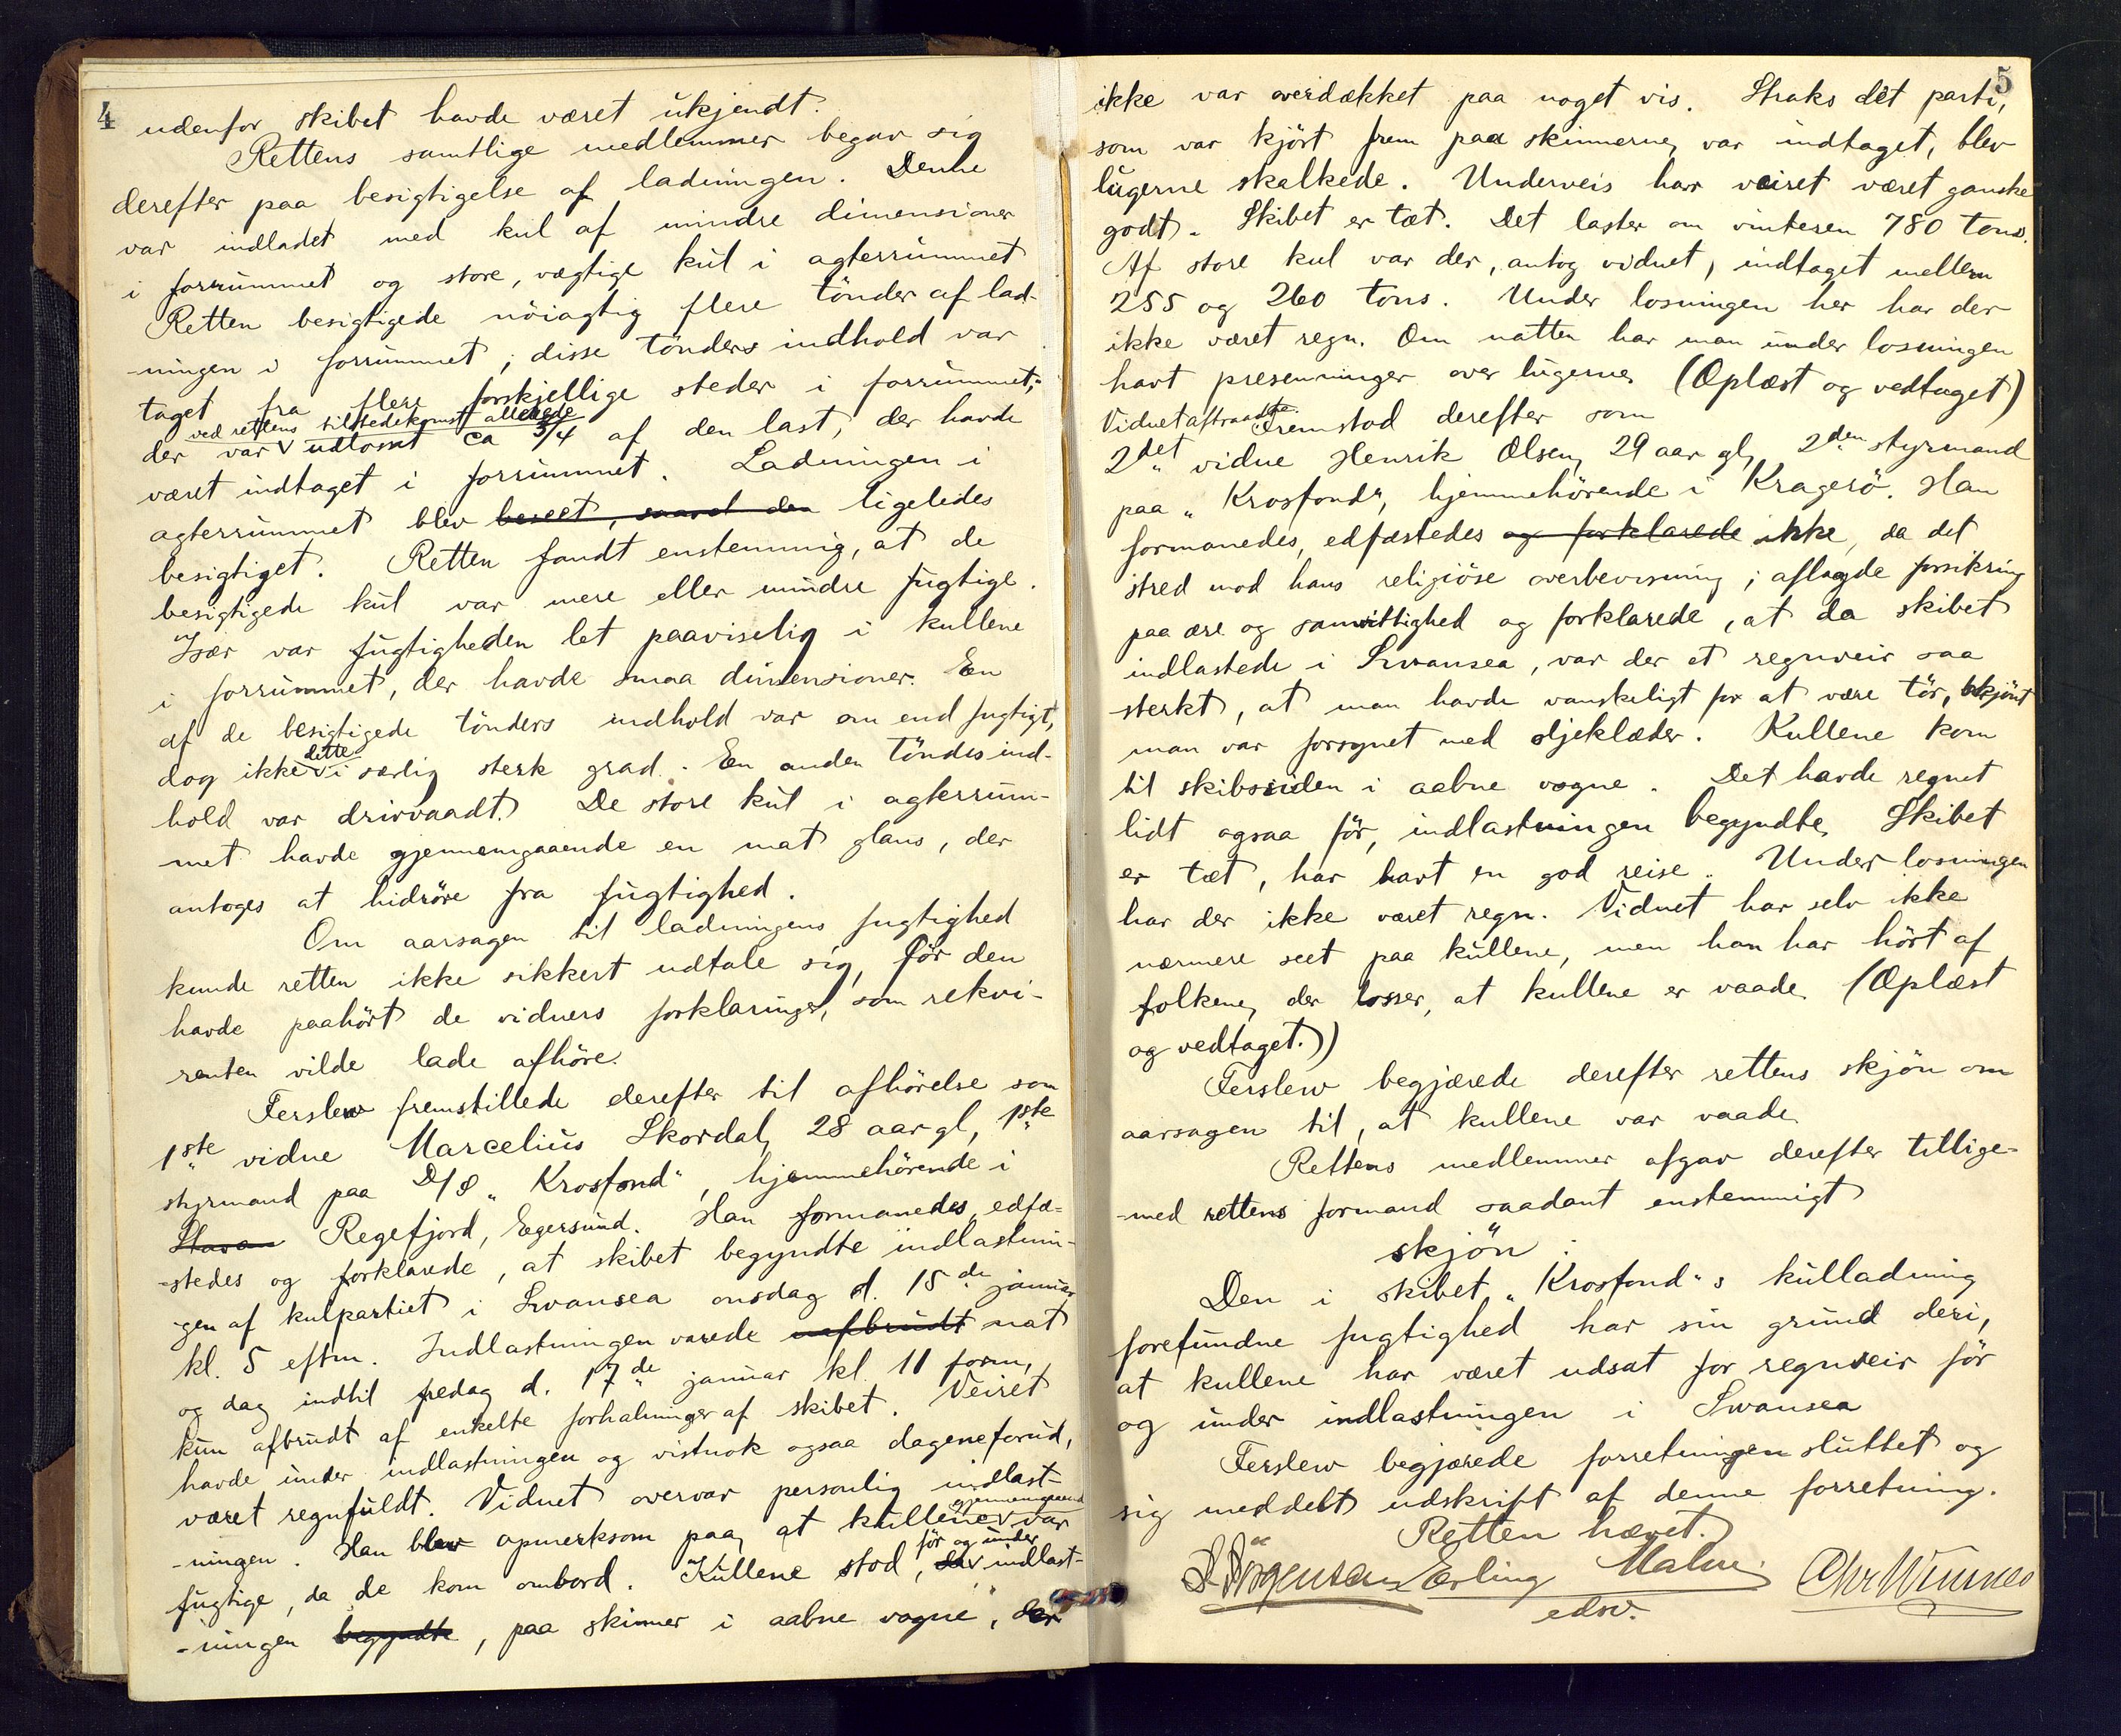 4
udenfor skibet havde været ukjendt.
Rettens samtlige medlemmer begav sig
derefter paa besigtigelse af ladningen. Denne
var indladet med kul af mindre dimensioner
i forrummet og store, vægtige kul i agterrummet
Retten besigtigede nöiagtig flere tönder af lad-
-ningen i forrummet; disse tönders indhold var
taget fra flere forskjellige steder i forrummet;
ved rettens tilstedekomst allerede
der var v udlosset ca 3/4 af den last, der havde
været indtaget i forrummet. Ladningen i
agterrummet blev beseet, saavel den ligeledes
besigtiget. Retten fandt enstemmig, at de
besigtigede kul var mere eller mindre fugtige.
Især var fugtigheden let paaviselig i kullene
i forrummet, der havde smaa dimensioner. En
af de besigtigede tönders indhold var om end fugtigt,
dette
dog ikke v i særlig sterk grad. En anden töndes ind-
hold var drivvaadt. De store kul i agterrum-
met havde gjennemgaaende en mat glans, der
antoges at hidröre fra fugtighed.
Om aarsagen til ladningens fugtighed
kunde retten ikke sikkert udtale sig, för den
havde paahört de vidners forklaringer, som rekvi-
renten vilde lade afhöre.
Ferslew fremstillede derefter til afhörelse som
1ste vidne Marcelius Skordal, 28 aar gl, 1ste
styrmand paa D/S "Krosfond", hjemmehörende i
Stavan Regefjord, Egersund. Han formanedes, edfæ-
-stedes og forklarede, at skibet begyndte indlastnin-
-gen af kulpartiet i Swansea onsdag d. 15de januar
kl. 5 eftm. Indlastningen varede uafbrudt nat
og dag indtil fredag d. 17de januar kl. 11 form,
kun afbrudt af enkelte forhalninger af skibet. Veiret
havde under indlastningen og vistnok ogsaa dagene forud,
været regnfuldt. Vidnet overvar personlig indlast-
gjennemgaaende
-ningen. Han blev opmerksom paa, at kullene v var
för og under
fugtige, da de kom ombord. Kullene stod, da v indlast-
-ningen begyndte, paa skinner i aabne vogne, der
5
ikke var overdækket paa noget vis. Straks det parti,
som var kjört frem paa skinnerne, var indtaget, blev
lugerne skalkede. Underveis har veiret været ganske
godt. Skibet er tæt. Det laster om vinteren 780 tons.
Af store kul var der, antog vidnet, indtaget mellem
255 og 260 tons. Under losningen her har der
ikke været regn. Om natten har man under losningen
havt presenninger over lugerne. (Oplæst og vedtaget)
Vidnet aftraadte. Fremstod derefter som
2det vidne Henrik Olsen, 29 aar gl, 2den styrmand
paa "Krosfond", hjemmehörende i Kragerö. Han
formanedes, edfæstedes og forklarede ikke, da det
stred mod hans religiöse overbevisning; aflagde forsikring
paa ære og samvittighed og forklarede, at da skibet
indlastede i Swansea, var der et regnveir saa
sterkt, at man havde vanskeligt for at være tör, skjönt
man var forsynet med oljeklæder. Kullene kom
til skibssiden i aabne vogne. Det havde regnet
lidt ogsaa för, indlastningen begyndte. Skibet
er tæt, har havt en god reise. Under losningen
har der ikke været regn. Vidnet har selv ikke
nærmere seet paa kullene, men han har hört af
folkene, der losser, at kullene er vaade. (Oplæst
og vedtaget.))
Ferslew begjærede derefter rettens skjön om
aarsagen til, at kullene var vaade
Rettens medlemmer afgav derefter tillige-
-med rettens formand saadant enstemmigt
skjön:
Den i skibet "Krosfond"s kulladning
forefundne fugtighed har sin grund deri,
at kullene har været udsat for regnveir för
og under indlastningen i Swansea
Ferslew begjærede forretningen sluttet og
sig meddelt udskrift af denne forretning.
Retten hævet.
Jörgensen Erling Malm Chr Winnes
edsv.